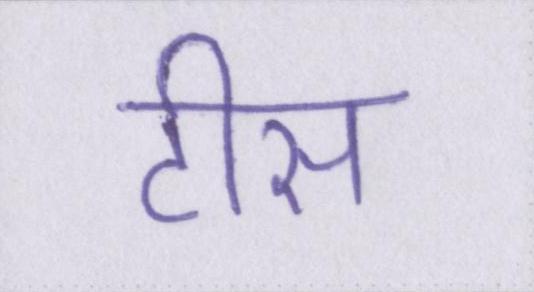 टीस